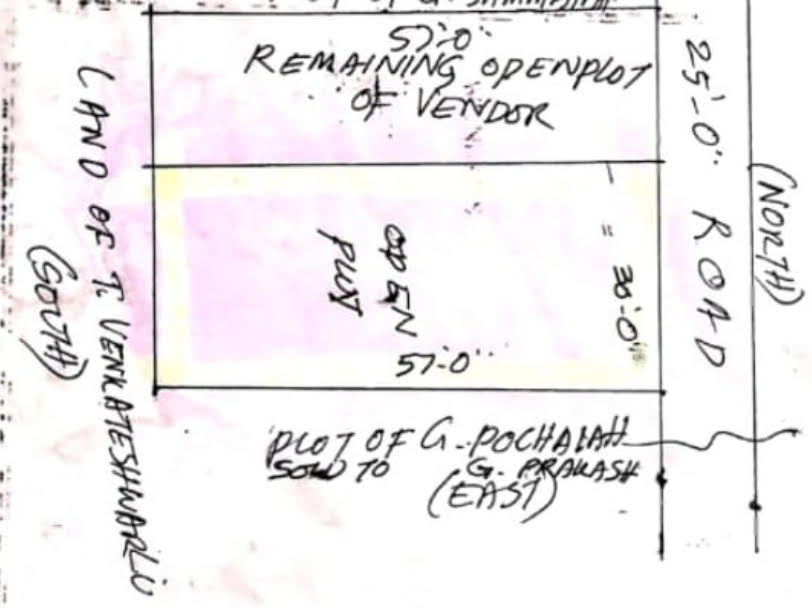 57'-0"
REMAINING OPENPLOT
OF VENDOR
25'-0" ROAD
(NORTH)
LAND OF T. VENKATESHWARLU
(SOUTH)
OPEN
PLOT
= 30'-0"
57'-0"
PLOT OF G. POCHAIAH
SOLD TO G. PRAKASH
(EAST)